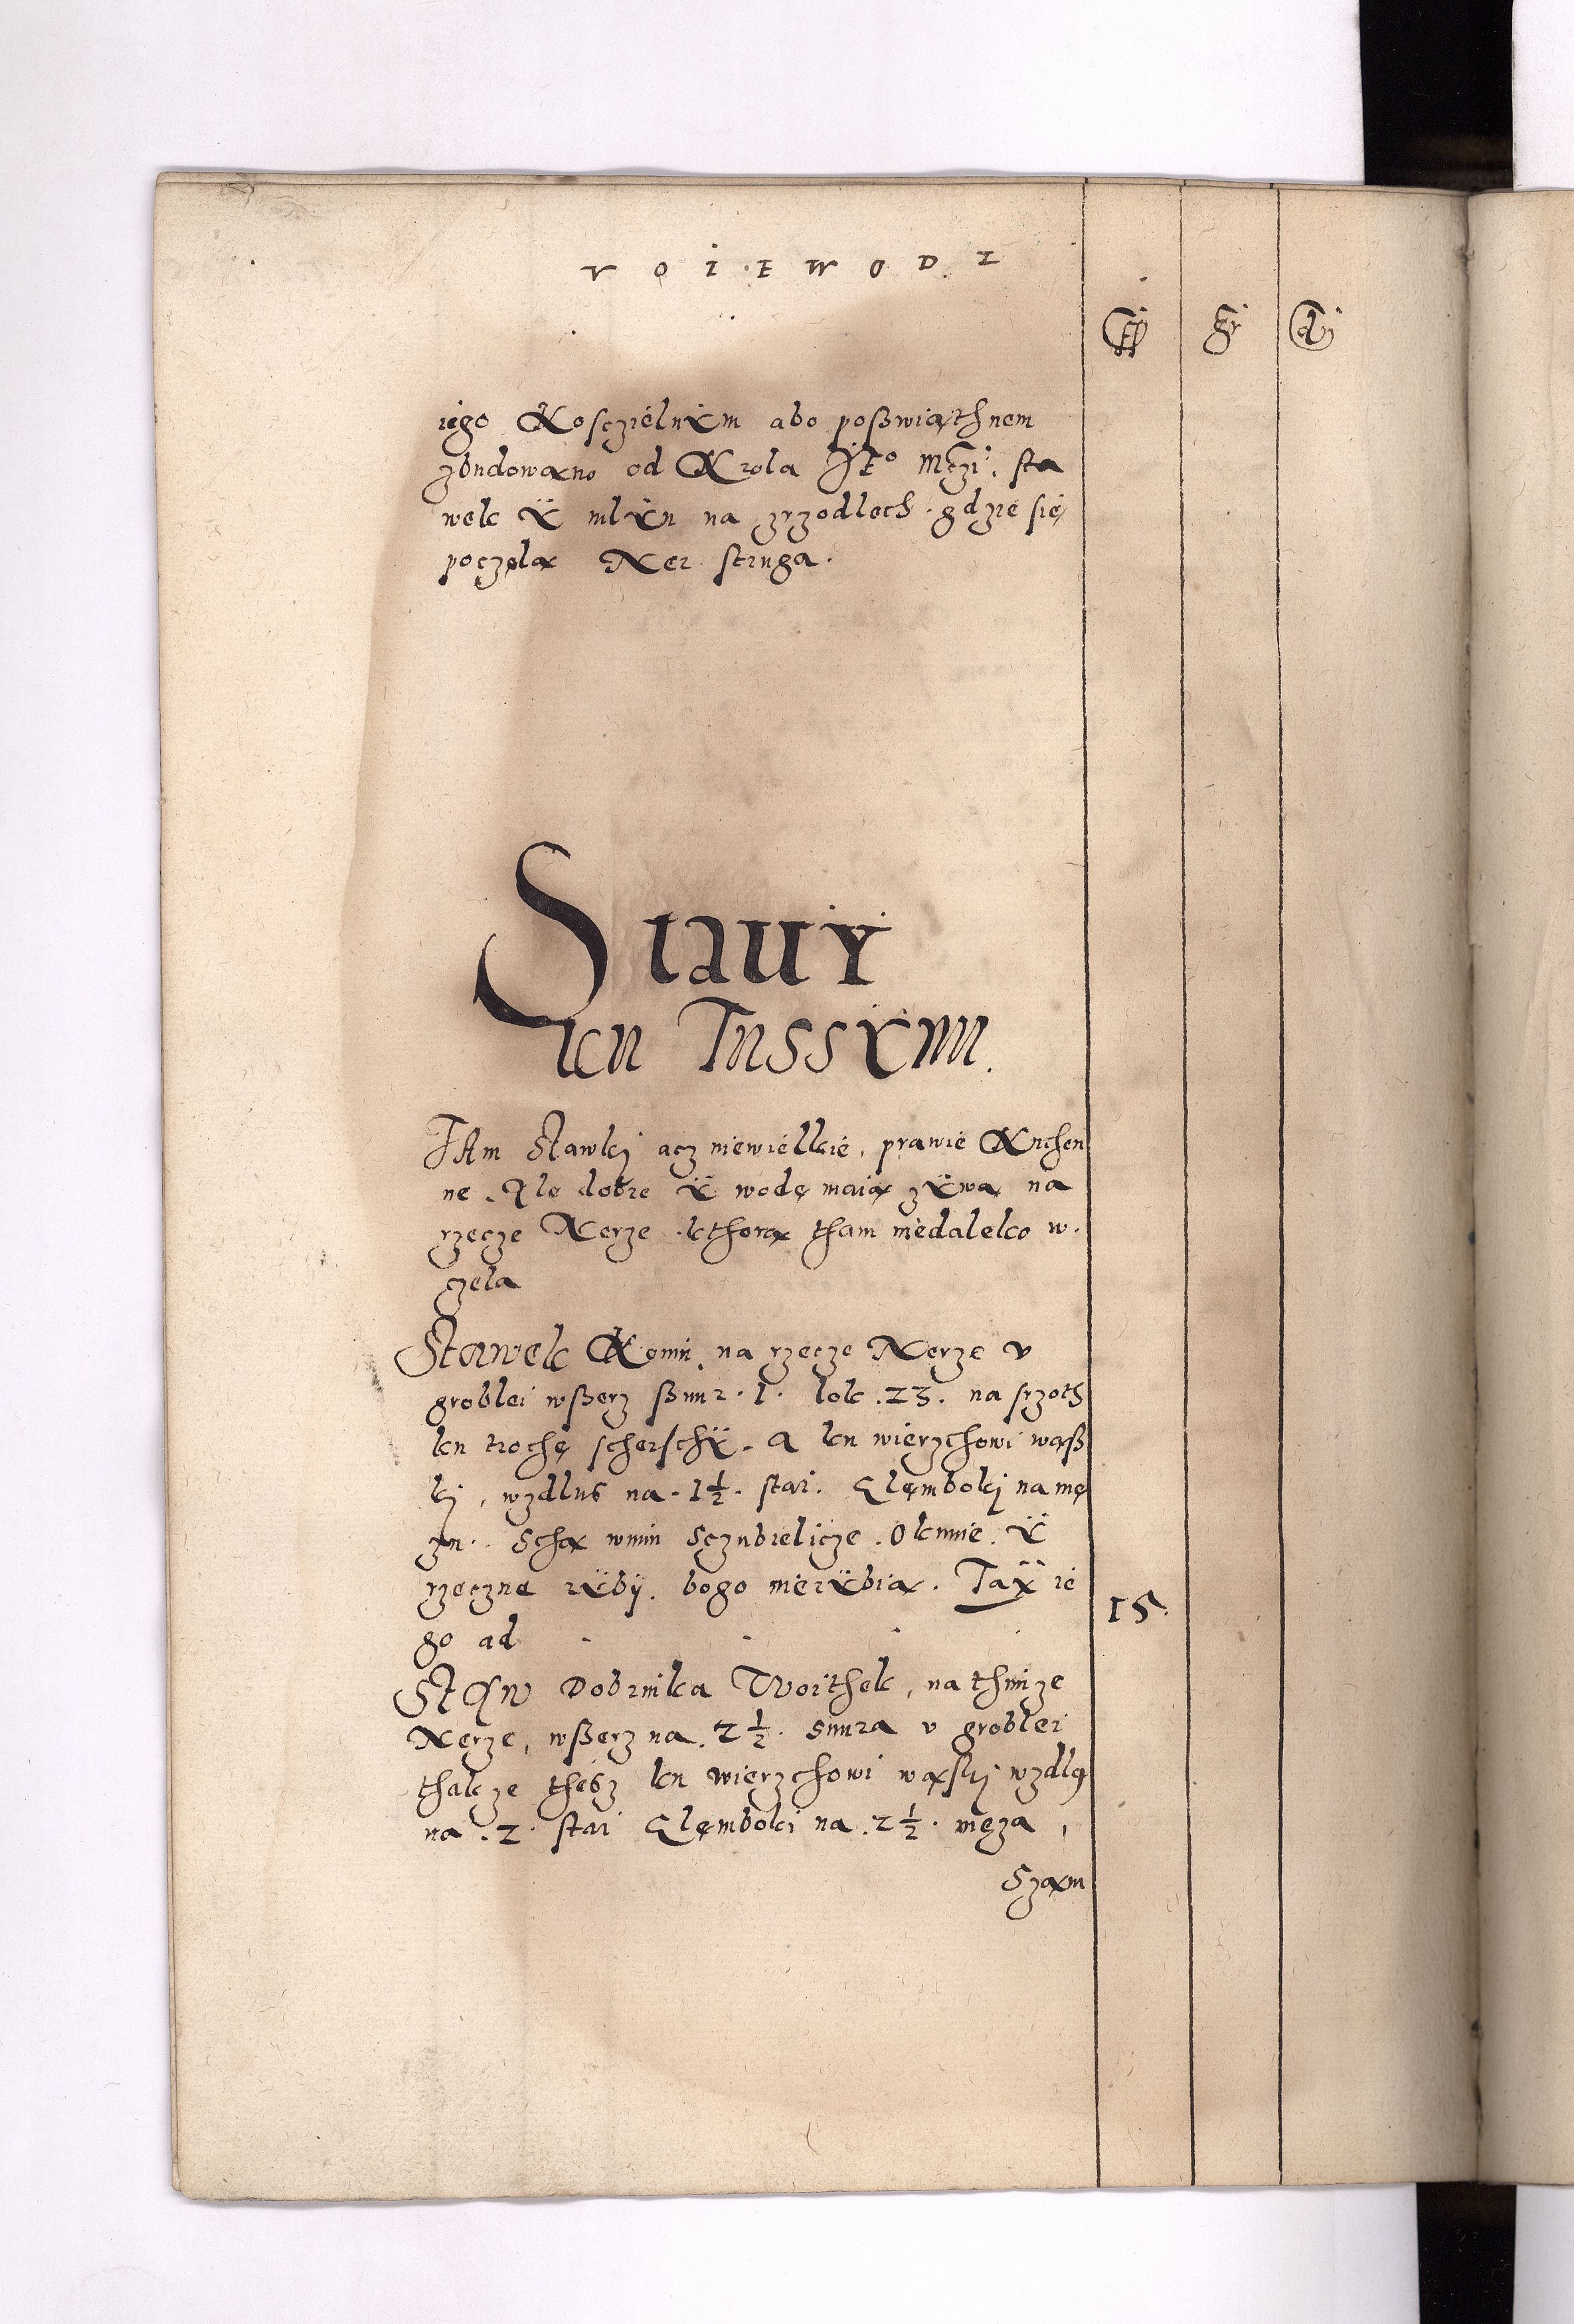 VOIEWODZ
fl gr d
iego Kosczielnÿm abo poßwiąthnem
zbudowano od Krola JE° Mczi. sta
wek ÿ mlÿn na zrzodlech. gdzie się
poczęla Ner struga.
Stawÿ
ku Tussÿnu.
TAm Stawki acz niewielkie, prawie Kuchen
ne. Ale dobre ÿ wodę maią zÿwą na
rzecze Nerze. kthora tham niedaleko w.
czela
Stawek Konin na rzecze Nerze v
groblei wßerz ßnur. 1. lok. 23. na srzoth
ku trochę scherschÿ. A ku wierzchowi wąß
kj, wzdlus na. 1½. stai. Glęmbokj na mę
zu. Schą wnim Sczubielicze. Oknnie. ÿ
rzeczne rÿbÿ. bogo nierÿbią. Tax ie
go ad
15.
StAw Dobrnika Woithek, na thmize
Nerze, wßerz na. 2½. snura v groblei
thakze thesz ku wierzchowi wąskj wzdlg
na. 2. stai Glęmboki na. 2½. męza,
Sząm